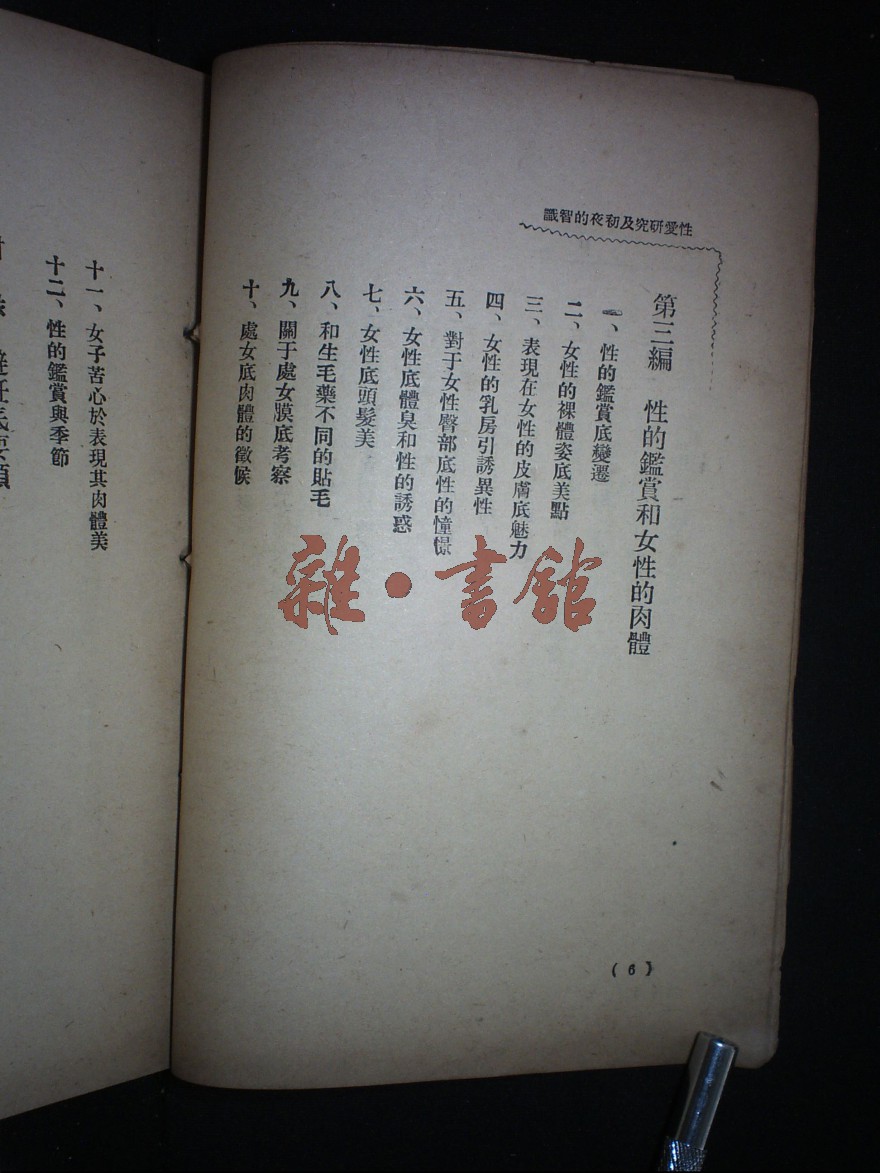 性愛研究及初夜的智識
第三編　性的鑑賞和女性的肉體
一、性的鑑賞底變遷
二、女性的裸體姿底美點
三、表現在女性的皮膚底魅力
四、女性的乳房引誘異性
五、對于女性臀部底性的憧憬
六、女性底體臭和性的誘惑
七、女性底頭髮美
八、和生毛藥不同的貼毛
九、關于處女膜底考察
十、處女底肉體的徵候
(6)
十一、女子苦心於表現其肉體美
十二、性的鑑賞與季節
雜·書館